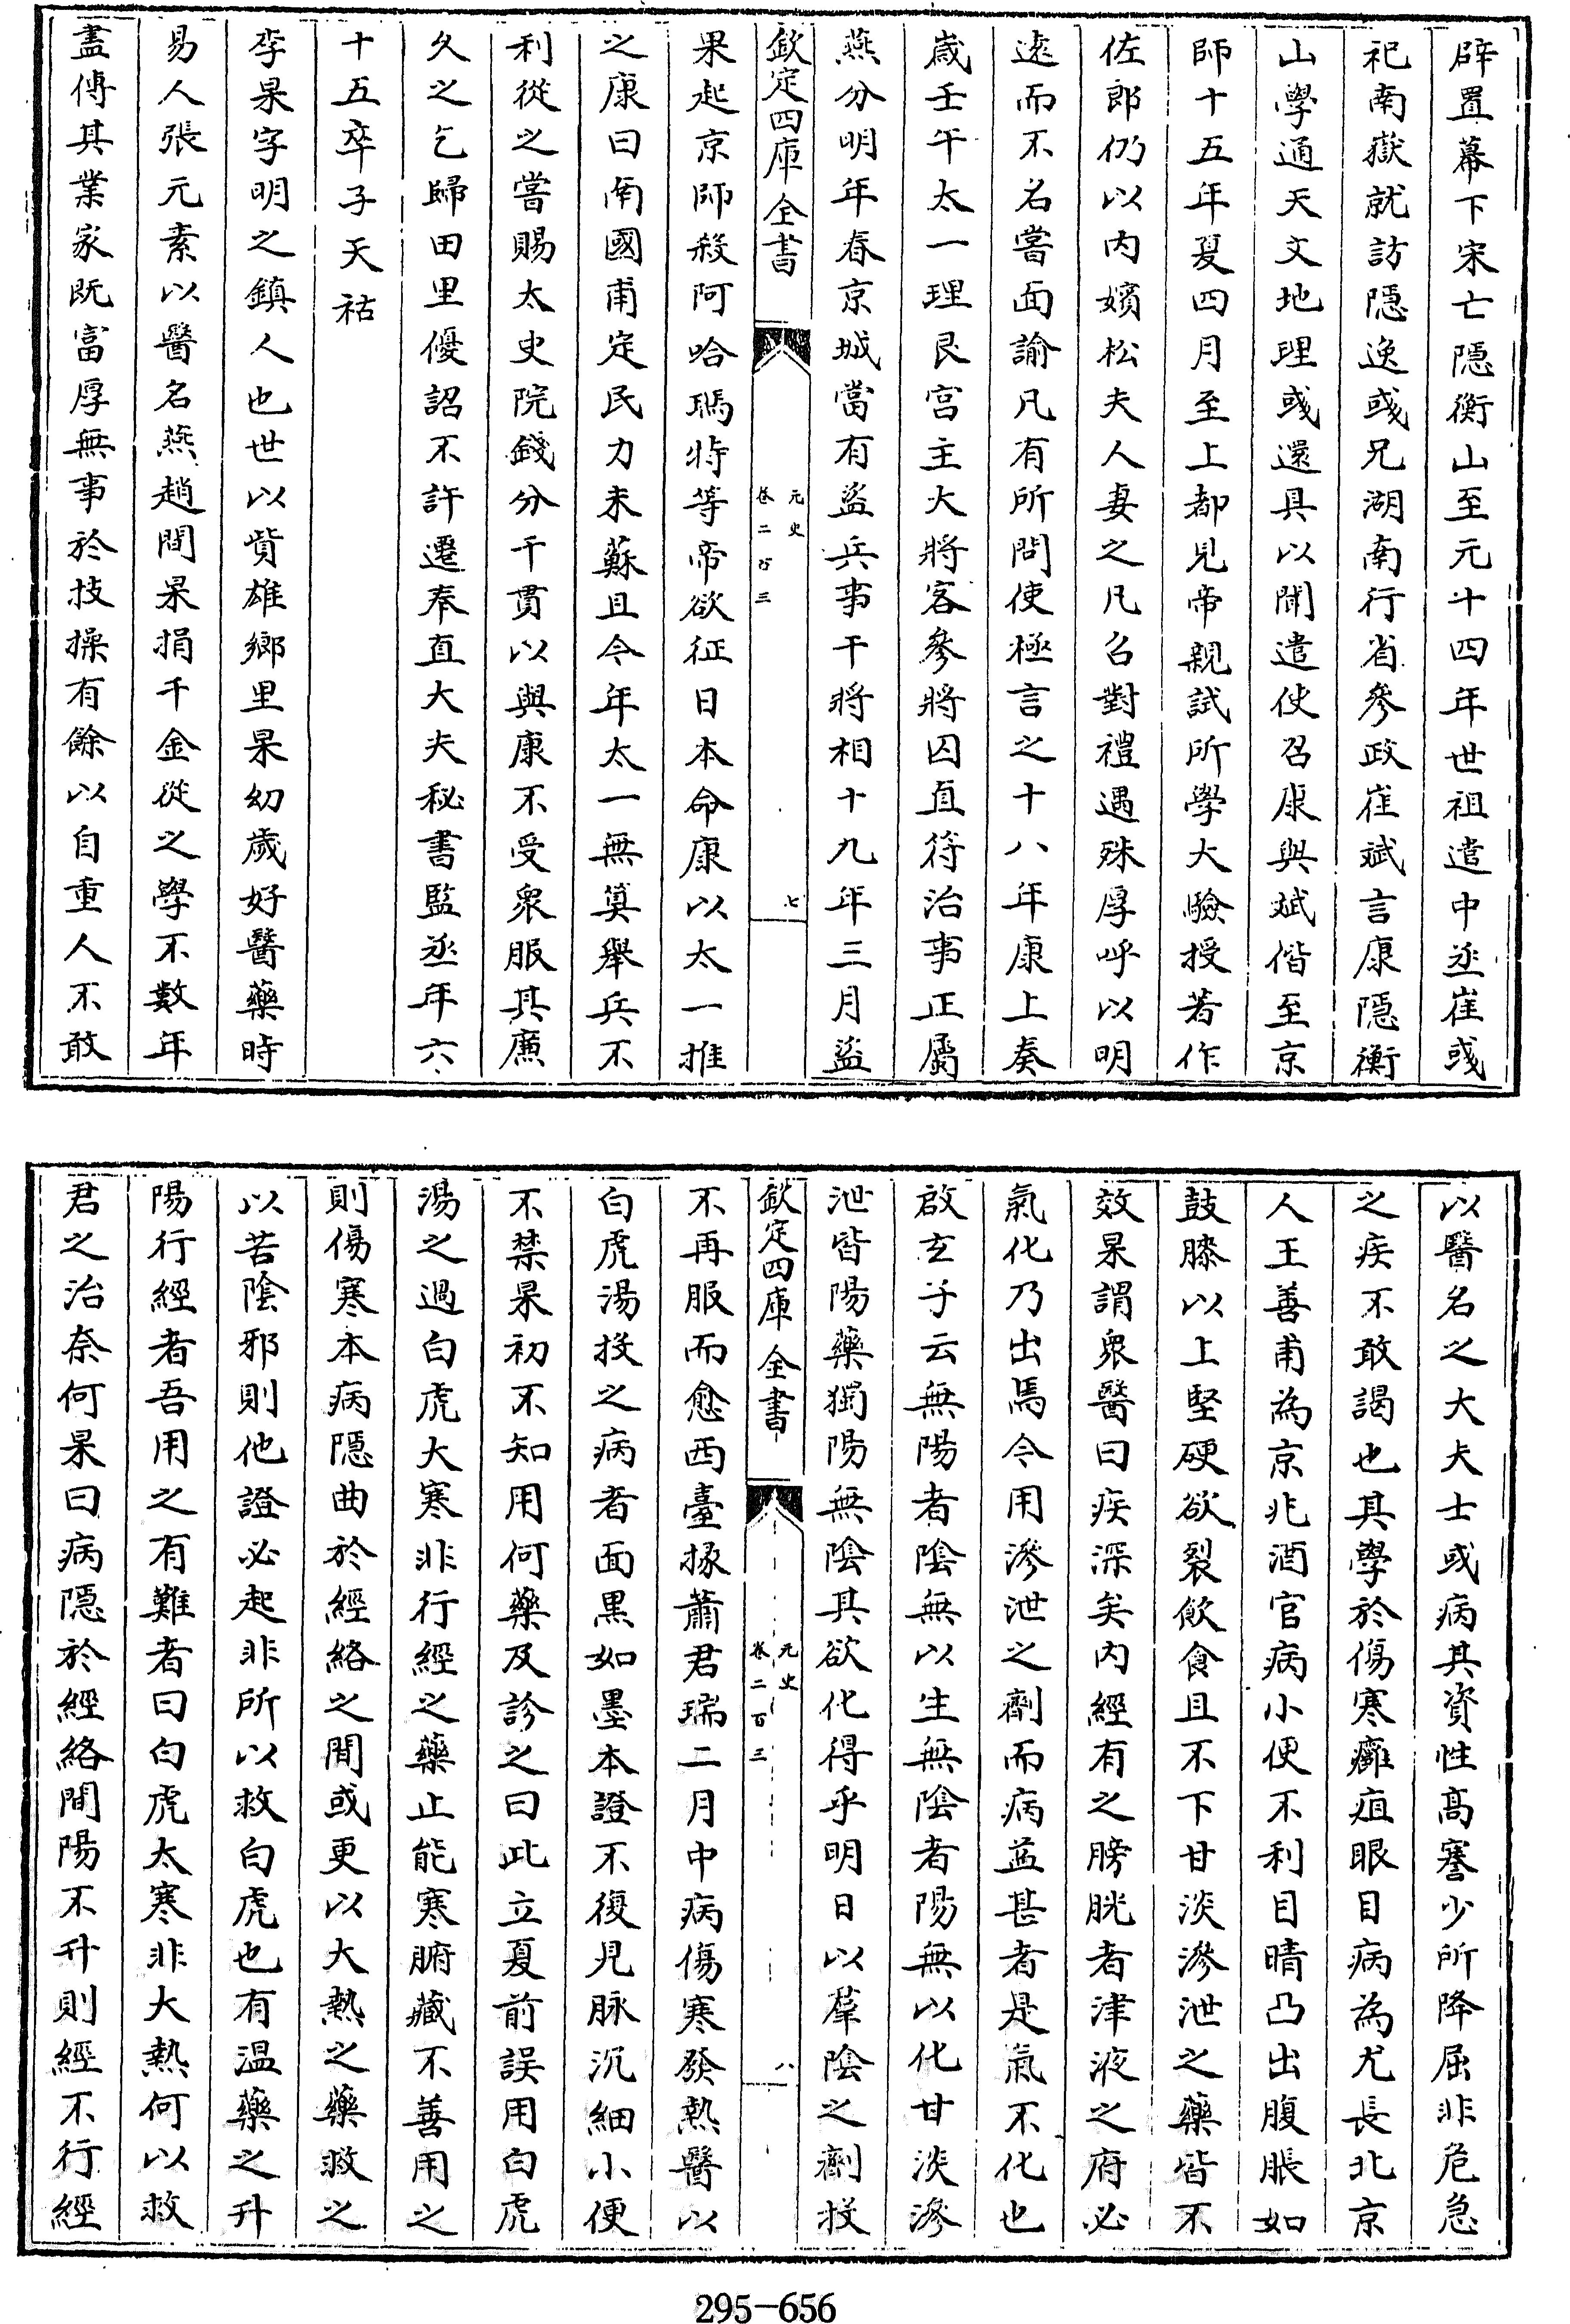 辟置幕下宋亡隱衡山至元十四年世祖遣中丞崔彧
祀南嶽就訪隱逸彧兄湖南行省參政崔斌言康隱衡
山學通天文地理彧還具以聞遣使召康與斌偕至京
師十五年夏四月至上都見帝親試所學大驗授若作
佐郎仍以内嬪松夫人妻之凡召對禮遇殊厚呼以明
逺而不名嘗面諭凡有所問使極言之十八年康上奏
嵗壬午太一理艮宫主大將客參將囚直符治事正屬
燕分明年春京城當有盜兵事干將相十九年三月盜
欽定四庫全書
元史
卷二百三
七
果起京師殺阿哈瑪特等帝欲征日本命康以太一推
之康曰南國甫定民力未蘇且今年太一無算舉兵不
利從之嘗賜太史院錢分千貫以與康不受衆服其廉
久之乞歸田里優詔不許遷奉直大夫秘書監丞年六
十五卒子天祐
李杲字明之鎮人也世以貲雄鄉里杲幼嵗好醫藥時
易人張元素以醫名燕趙間杲捐千金從之學不數年
盡傳其業家既富厚無事於技操有餘以自重人不敢
以醫名之大夫士或病其資性髙謇少所降屈非危急
之疾不敢謁也其學於傷寒癰疽眼目病為尤長北京
人王善甫為京兆酒官病小便不利目睛凸出腹脹如
鼓膝以上堅硬欲裂飲食且不下甘淡滲泄之藥皆不
效杲謂衆醫曰疾深矣内經有之膀胱者津液之府必
氣化乃出焉今用滲泄之劑而病益甚者是氣不化也
啟玄子云無陽者陰無以生無陰者陽無以化甘淡滲
泄皆陽藥獨陽無陰其欲化得乎明日以羣陰之劑投
欽定四庫全書
元史
卷二百三
八
不再服而愈西臺掾蕭君瑞二月中病傷寒發熱醫以
白虎湯投之病者面黒如墨本證不復見脉沉細小便
不禁杲初不知用何藥及診之曰此立夏前誤用白虎
湯之過白虎大寒非行經之藥止能寒腑藏不善用之
則傷寒本病隱曲於經絡之間或更以大熱之藥救之
以苦陰邪則他證必起非所以救白虎也有温藥之升
陽行經者吾用之有難者曰白虎太寒非大熱何以救
君之治奈何杲曰病隱於經絡間陽不升則經不行經
295-656